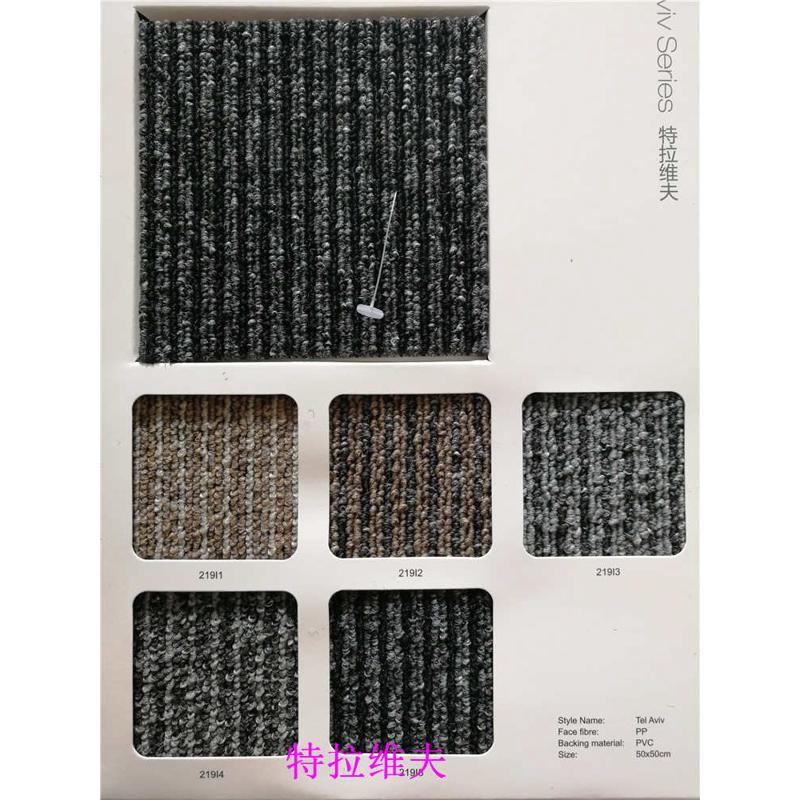 viv Series 特拉维夫
219I1
219I2
219I3
219I4
219I5
Style Name: Tel Aviv
Face fibre: PP
Backing material: PVC
Size: 50x50cm
特拉维夫